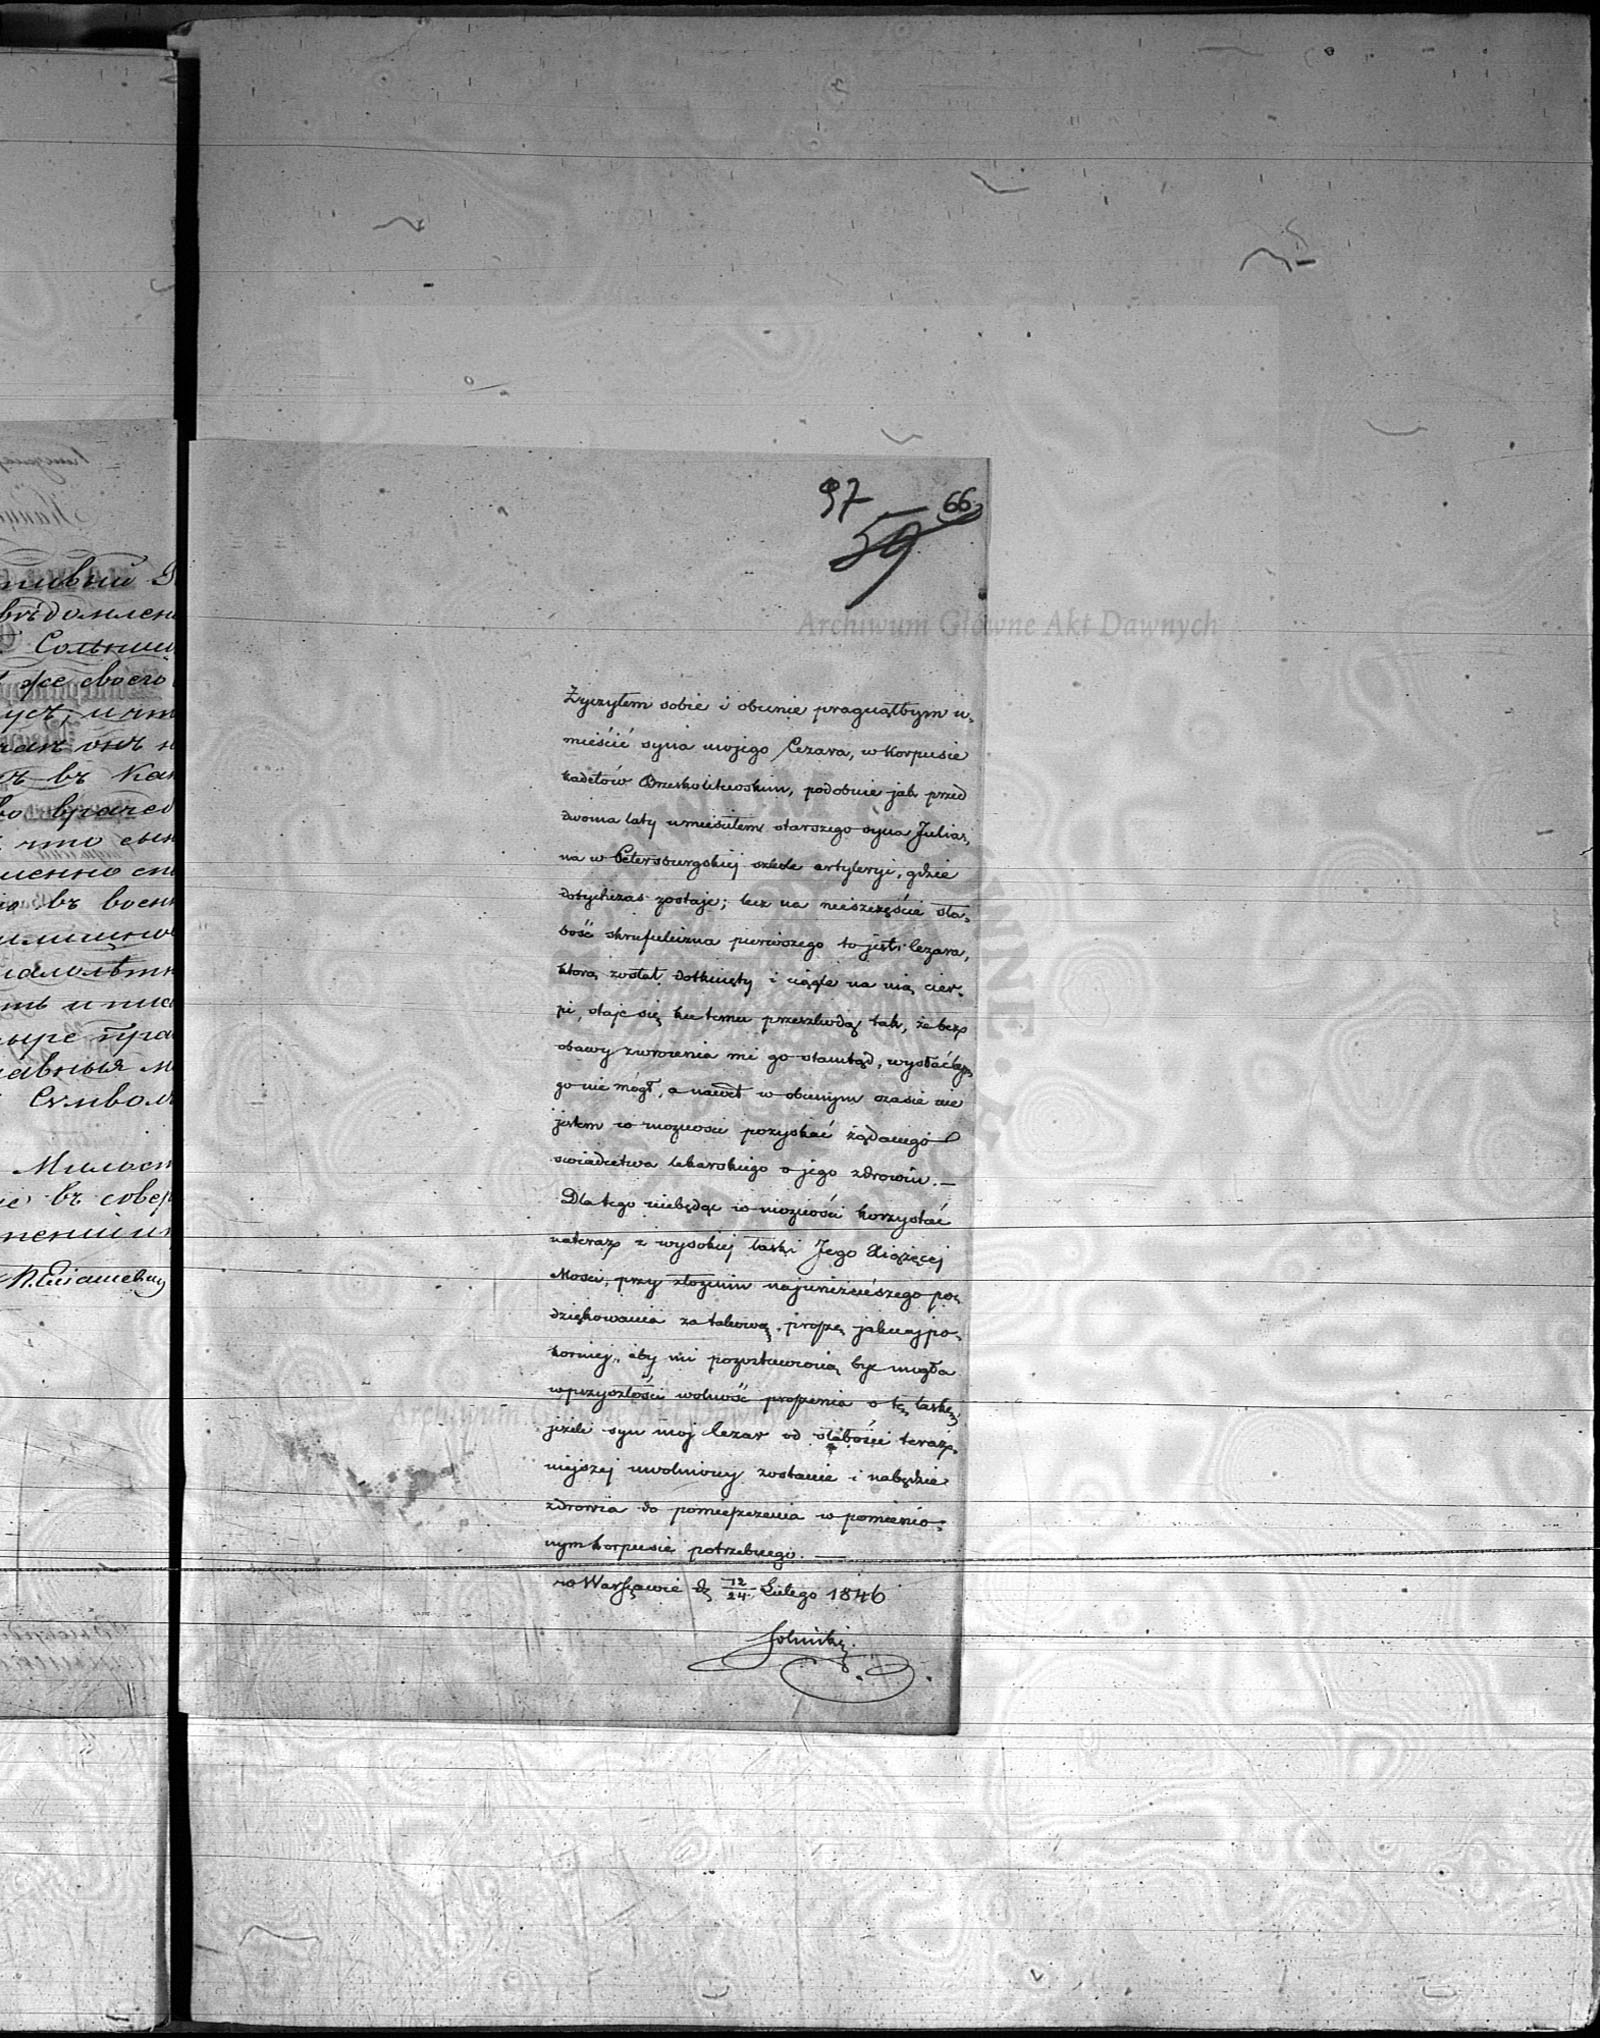 97
66
59
Życzyłem sobie i obecnie pragnąłbym u-
mieścić syna mojego Cezara, w Korpusie
Kadetów Brzeskolitewskim, podobnie jak przed
dwoma laty umieściłem starszego syna Julia-
na w Petersburgskiej szkole artyleryi, gdzie
dotychczas zostaje; lecz na nieszczęście sła-
bość skrofuliczna pierwszego to jest: Cezara,
którą został dotknięty i ciągle na nią cier-
pi, staje się ku temu przeszkodą tak, że bez
obawy zwrócenia mi go stamtąd, wysłać bym
go nie mógł, a nawet w obecnym czasie nie
jestem w możności pozyskać żądanego
świadectwa lekarskiego o jego zdrowiu. —
Dla tego niebędąc w możności korzystać
nateraz z wysokiej łaski Jego Xiążęcej
Mości, przy złożeniu najuniżeńszego po-
dziękowania za takową, proszę jaknajpo-
korniej, aby mi pozostawioną być mogła
w przyszłości wolność proszenia o tę łaskę,
jeżeli syn mój Cezar od słabości teraz-
niejszej uwolniony zostanie i nabędzie
zdrowia do pomieszczenia w pomienio-
nym Korpusie potrzebnego. —
w Warszawie d. 12/24 Lutego 1846
Solnicki
тивый
ведомлен
Сольниц
же своего
усъ, и чт
въ Ка
во врачеб
что сын
менно
въ воен
ть и пис
ыре пра
авныя м
Символ
Милост
въ совер
Archiwum Główne Akt Dawnych
Archiwum Główne Akt Dawnych